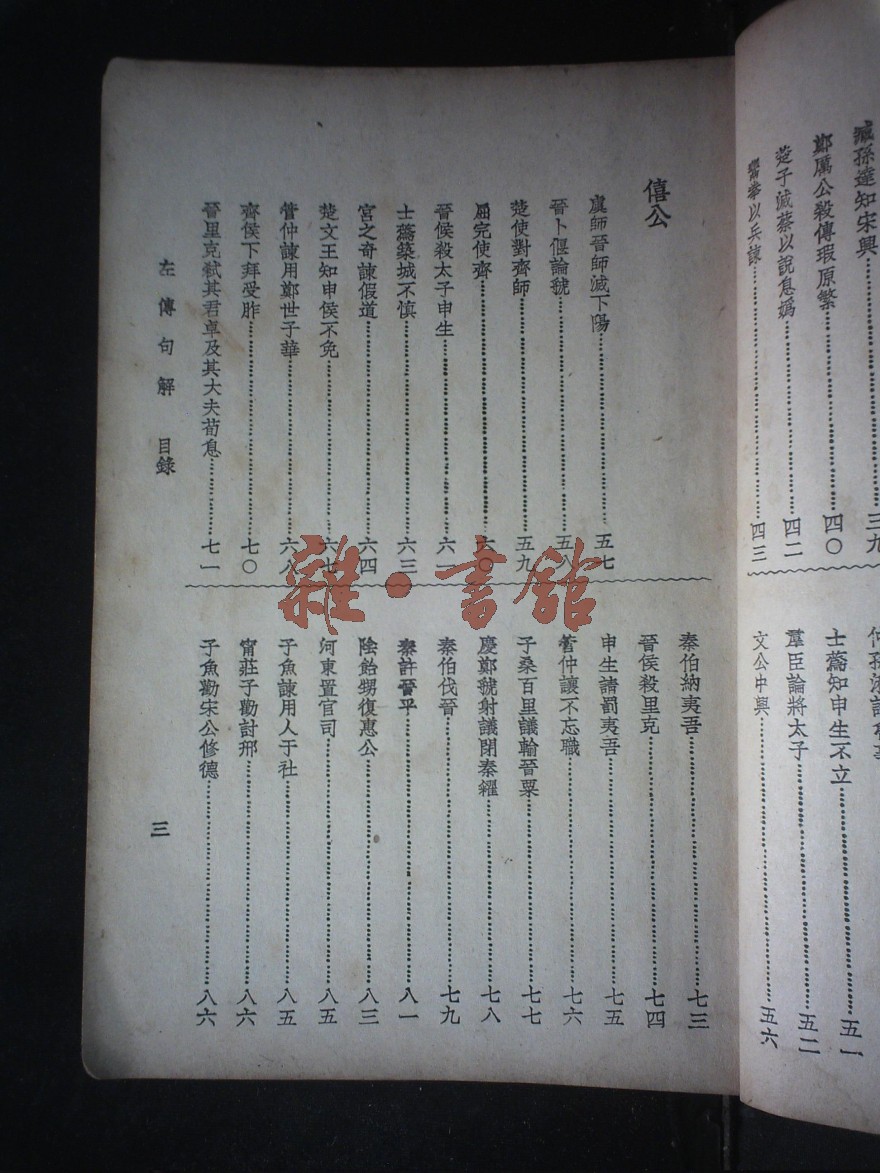 臧孫達知宋興……三九
鄭厲公殺傅瑕原繁……四〇
楚子滅蔡以說息嬀……四二
鬻拳以兵諫……四三
士蔿知申生不立……五一
羣臣論將太子……五二
文公中興……五六
僖公
虞師晉師滅下陽……五七
晉卜偃論虢……五八
楚使對齊師……五九
屈完使齊……六〇
晉侯殺太子申生……六一
士蔿築城不慎……六三
宮之奇諫假道……六四
楚文王知申侯不免……六七
管仲諫用鄭世子華……六八
齊侯下拜受胙……七〇
晉里克弒其君卓及其大夫荀息……七一
秦伯納夷吾……七三
晉侯殺里克……七四
申生請罰夷吾……七五
管仲讓不忘職……七六
子桑百里議輸晉粟……七七
慶鄭虢射議閉秦糴……七八
秦伯伐晉……七九
秦許晉平……八一
陰飴甥復惠公……八三
河東置官司……八五
子魚諫用人于社……八五
甯莊子勸討邢……八六
子魚勸宋公修德……八六
左傳句解 目錄
三
雜·書館